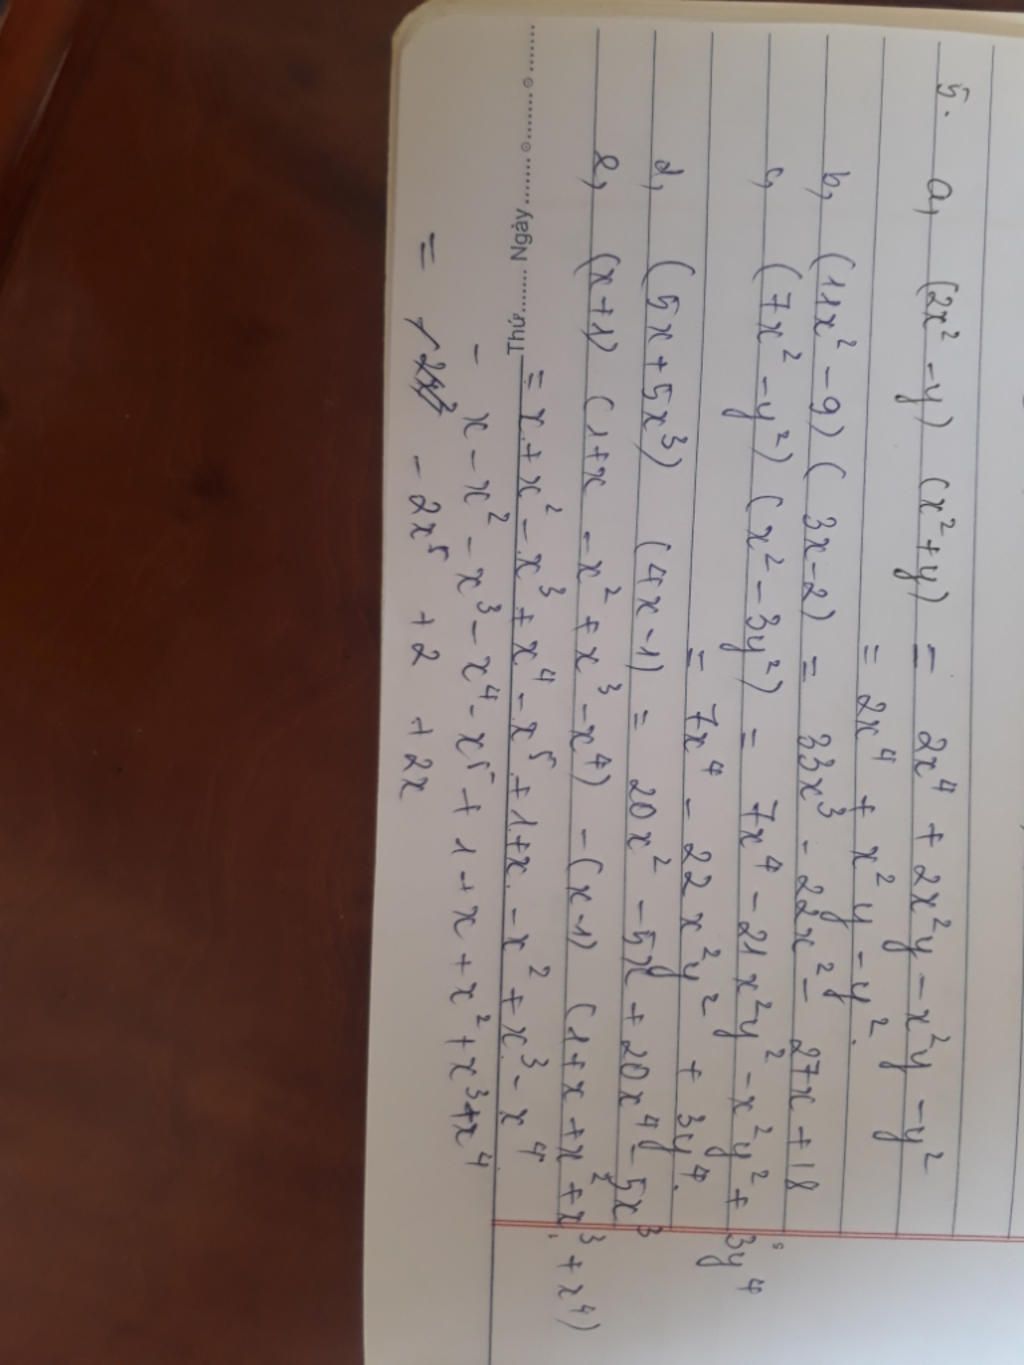 5. a, (2x² - y) (x² + y) = 2x⁴ + 2x²y - x²y - y²
= 2x⁴ + x²y - y².
b, (11x² - 9) (3x - 2) = 33x³ - 22x² - 27x + 18
c, (7x² - y²) (x² - 3y²) = 7x⁴ - 21x²y² - x²y² + 3y⁴
= 7x⁴ - 22x²y² + 3y⁴.
d, (5x + 5x³) (4x - 1) = 20x² - 5x + 20x⁴ - 5x³
e, (x + 1) (1 + x - x² + x³ - x⁴) - (x - 1) (1 + x + x² + x³ + x⁴)
Thứ....... Ngày ....... ○....... ○ .......
= x + x² - x³ + x⁴ - x⁵ + 1 + x - x² + x³ - x⁴
- x - x² - x³ - x⁴ - x⁵ + 1 + x + x² + x³ + x⁴
= - 2x⁵ + 2 + 2x